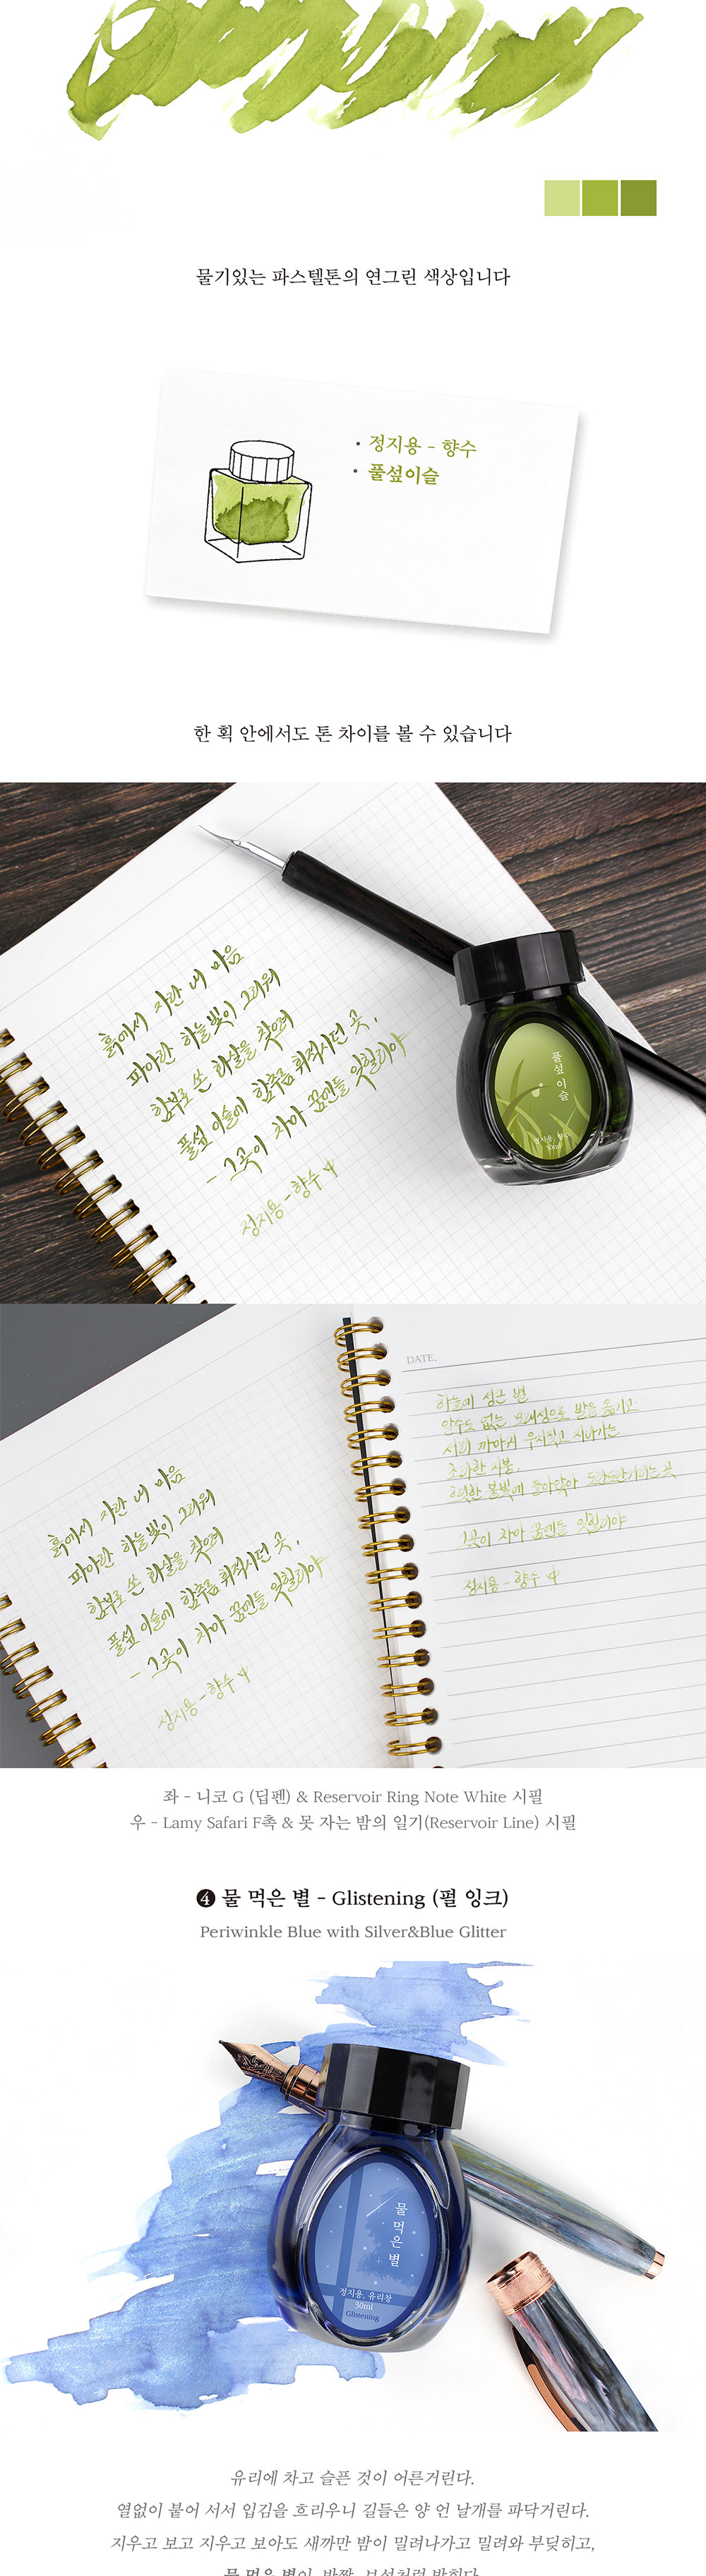 물기있는 파스텔톤의 연그린 색상입니다
• 정지용 - 향수
• 풀섶이슬
한 획 안에서도 톤 차이를 볼 수 있습니다
흙에서 자란 내 마음
파아란 하늘 빛이 그리워
함부로 쏜 화살을 찾으러
풀섶 이슬에 함추름 휘적시던 곳,
- 그곳이 차마 꿈엔들 잊힐리야
정지용 - 향수 中
풀섶 이슬
정지용, 향수
30ml
흙에서 자란 내 마음
파아란 하늘 빛이 그리워
함부로 쏜 화살을 찾으러
풀섶 이슬에 함추름 휘적시던 곳,
- 그곳이 차마 꿈엔들 잊힐리야
정지용 - 향수 中
DATE.
하늘에 성근 별
알수도 없는 모래성으로 발을 옮기고
서리 까마귀 우지짖고 지나가는
초라한 지붕,
흐릿한 불빛에 돌아앉아 도란도란거리는 곳
그곳이 차마 꿈엔들 잊힐리야
정지용 - 향수 中
좌 - 니코 G (딥펜) & Reservoir Ring Note White 시필
우 - Lamy Safari F촉 & 못 자는 밤의 일기(Reservoir Line) 시필
❹ 물 먹은 별 - Glistening (펄 잉크)
Periwinkle Blue with Silver&Blue Glitter
물 먹은 별
정지용, 유리창
30ml
Glistening
유리에 차고 슬픈 것이 어른거린다.
열없이 붙어 서서 입김을 흐리우니 길들은 양 언 날개를 파닥거린다.
지우고 보고 지우고 보아도 새까만 밤이 밀려나가고 밀려와 부딪히고,
물 먹은 별이, 반짝, 보석처럼 박힌다.